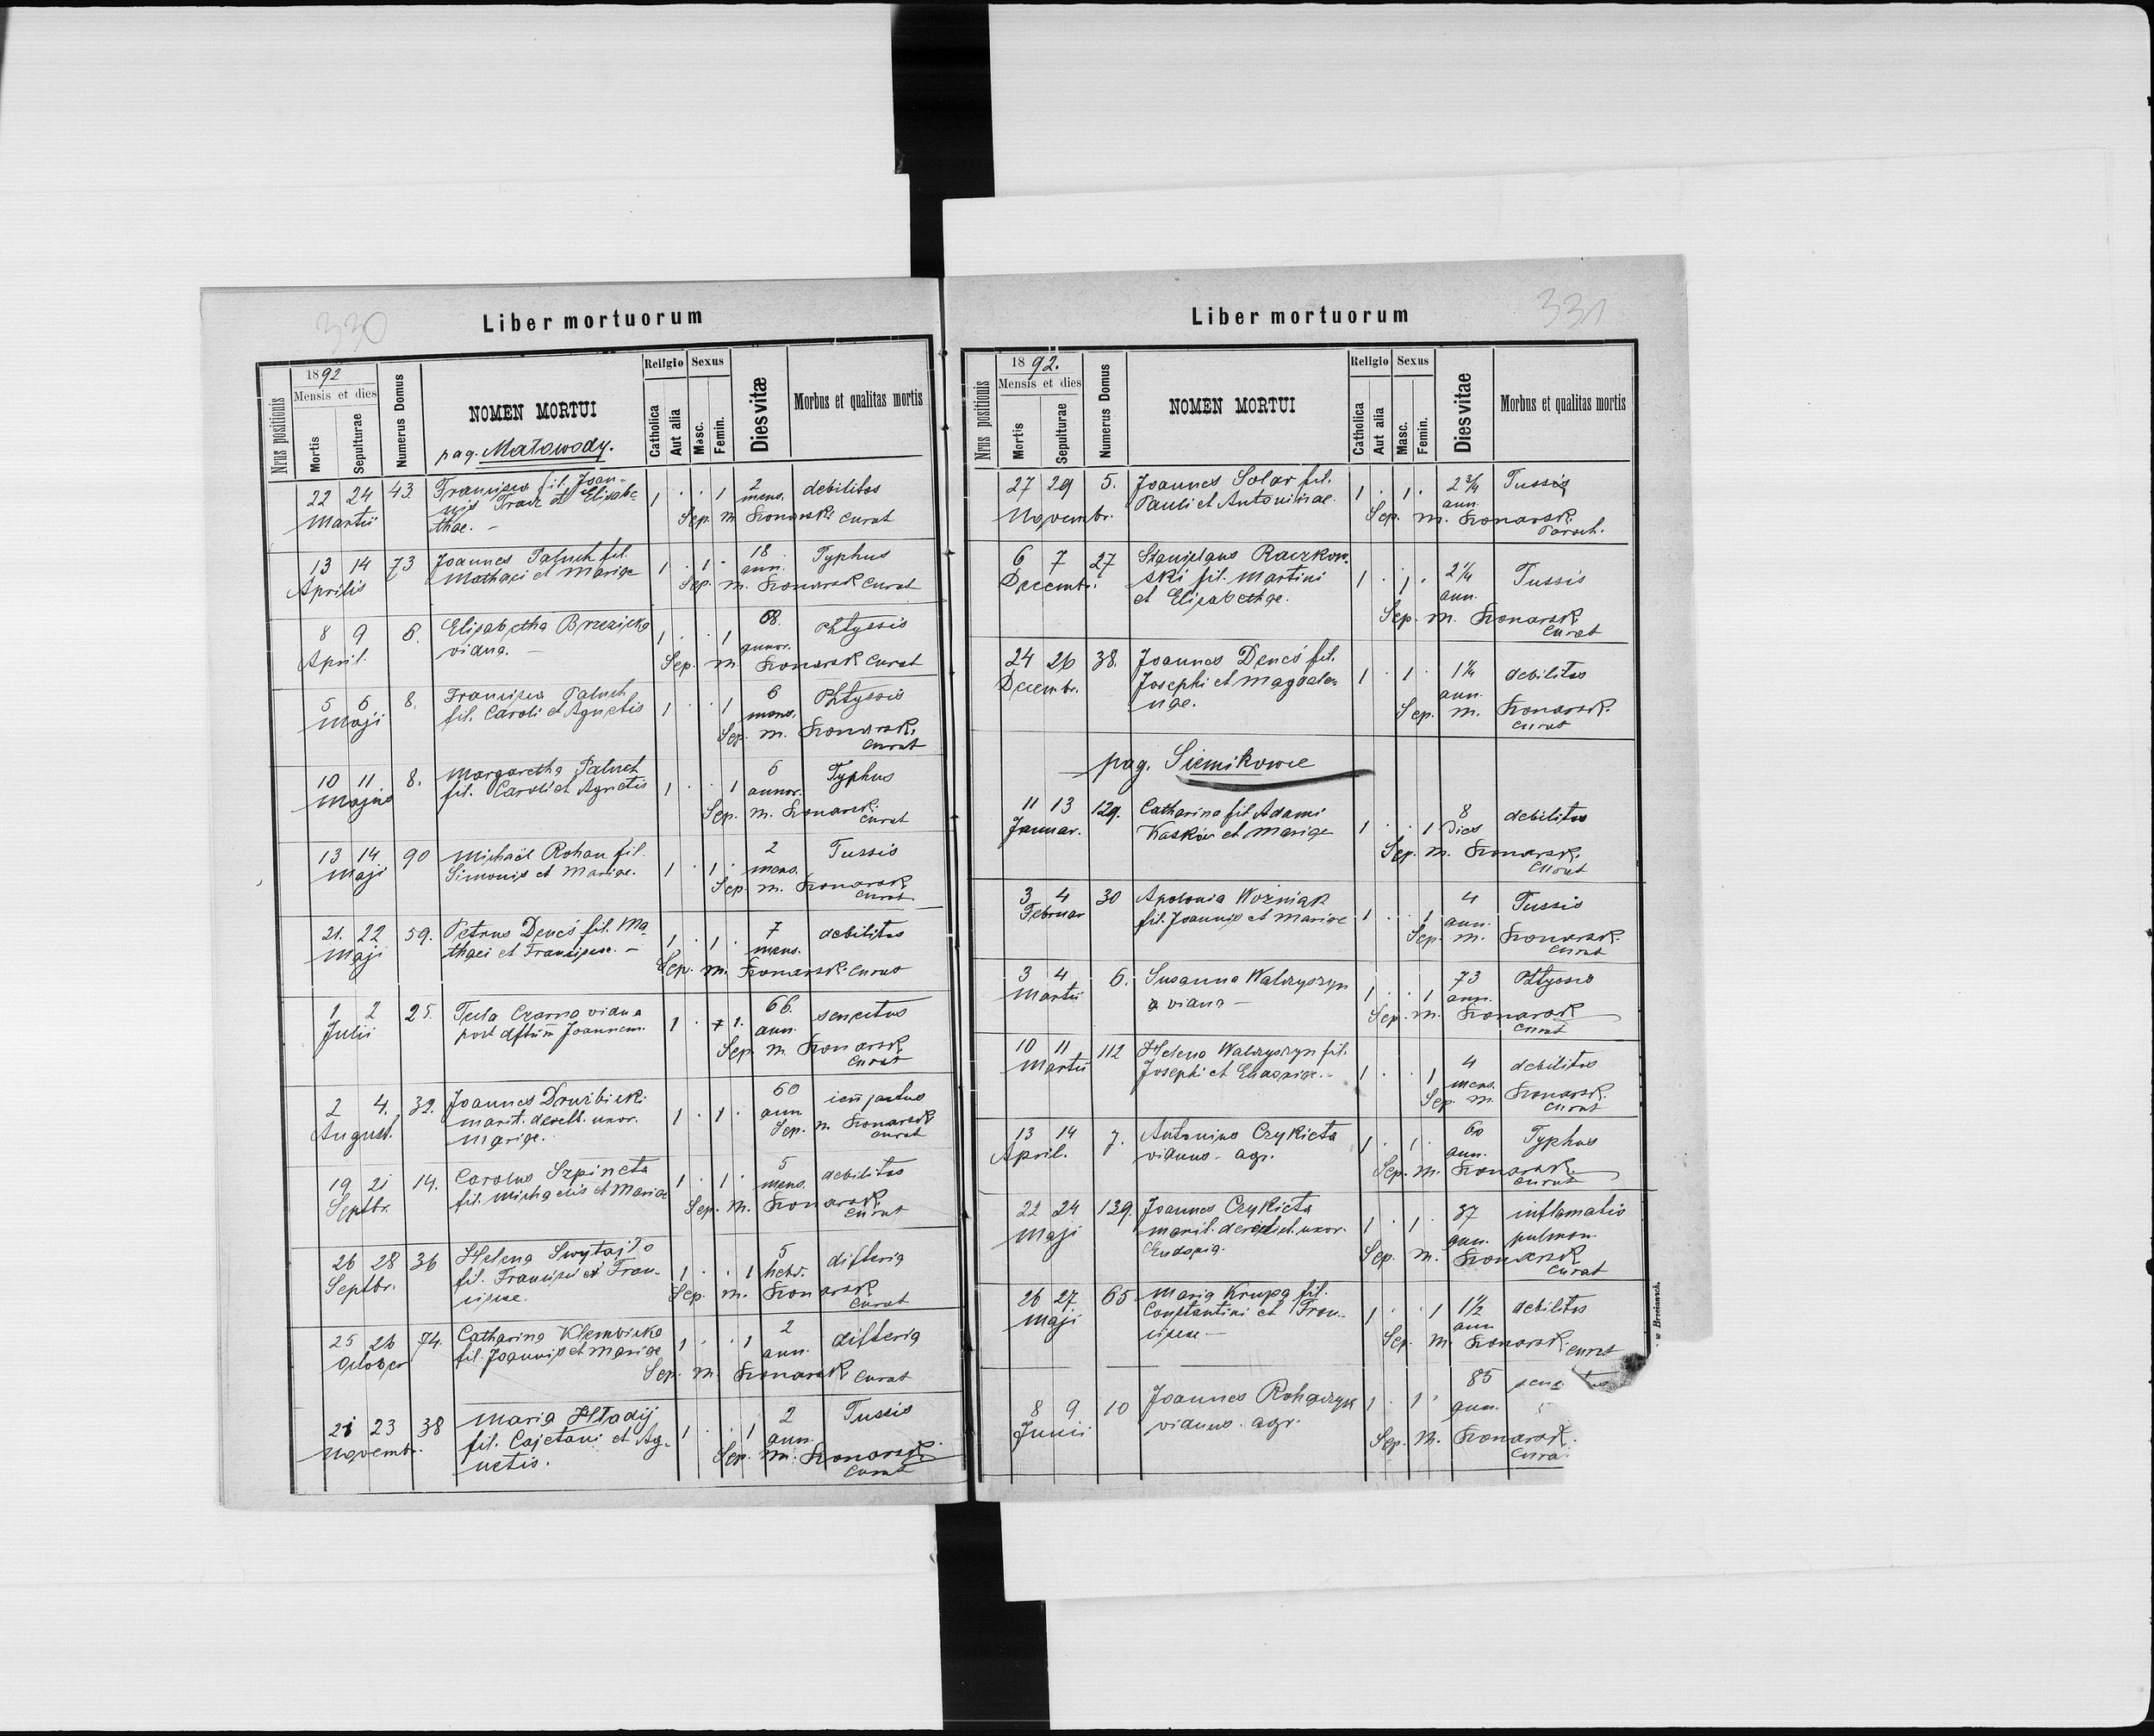 330
Liber mortuorum
Nrus positionis
1892
Mensis et dies
Mortis
Sepulturae
Numerus Domus
NOMEN MORTUI
pag. Małowody.
Religio
Catholica
Aut alia
Sexus
Masc.
Femin.
Dies vitæ
Morbus et qualitas mortis
22 24 43. Francisca fil. Joan- 1 . . 1 2 debilitas
Martii nis et Elisabe mens.
thae. - Sep. M. Konarski curat
13 14 73 Joannes Paluch fil. 1 . 1 . 18 Typhus
Aprilis Mathaei et Mariae ann.
Sep. M. Konarski curat
8 9 6. Elisabetha Brzezicka 1 . . 1 68. Phtyssis
April. vidua. - annor.
Sep. M. Konarski curat
5 6 8. Francisca Paluch 1 . . 1 6 Phtyssis
Maji fil. Caroli et Agnetis mens.
Sep. M. Konarski
curat
10 11 8. Margaretha Paluch 1 . . 1 6 Typhus
Majus fil. Caroli et Agnetis annor.
Sep. M. Konarski
curat
13 14 90 Michaël Rohan fil. 1 . 1 . 2 Tussis
Maji Simonis et Mariae. mens.
Sep. M. Konarski
curat
21. 22 59. Petrus Deneś fil. Ma 1 . 1 . 7 debilitas
Maji thaei et Franciscae. - mens.
Sep. M. Konarski curat
1 2 25. Tecla Czarna vidua 1 . 1. 66. senectus
Julii post dftum Joannem. ann.
Sep. M. Konarski
curat
2 4. 32. Joannes Drużbicki 1 . 1 . 60
August. marit. derelt. uxor. ann
Mariae. Sep. M. Konarski
curat
19 21 14. Carolus Szpineta 1 . 1 . 5 debilitas
Septbr. fil. Michaelis et Mariae mens.
Sep. M. Konarski
curat
26 28 36 Helena Swytajło 1 . . 1 5 difteria
Septbr. fil. Francisci et Fran- hebd.
ciscae. Sep. M. Konarski
curat
25 26 74. Catharina Klembicka 1 . . 1 2 difteria
October fil. Joannis et Mariae ann.
Sep. M. Konarski curat
21 23 38 Maria Hładij 1 . . 1 2 Tussis
Novembr. fil. Cajetani et Ag- ann.
netis. Sep. M. Konarski
curat
331
Liber mortuorum
Nrus positionis
1892.
Mensis et dies
Mortis
Sepulturae
Numerus Domus
NOMEN MORTUI
Religio
Catholica
Aut alia
Sexus
Masc.
Femin.
Dies vitae
Morbus et qualitas mortis
27 29 5. Joannes Solar fil. 1 . 1 . 2 3/4 Tussis
Novembr. Pauli et Antoninae. ann.
Sep. M. Konarski
Paroch.
6 7 27 Stanislaus Raczkow- 1 . 1 . 2 1/4 Tussis
Decembr. ski fil. Martini ann.
et Elisabethae.
Sep. M. Konarski
curat
24 26 38. Joannes Deneś fil. 1 . 1 . 1 1/4 debilitas
Decembr. Josephi et Magdale- ann.
nae. Sep. M. Konarski
curat
pag. Siemikowce
11 13 129. Catharina fil. Adami 1 . . 1 8 debilitas
Januar. Kaskiw et Mariae Dies
Sep. M. Konarski
curat
3 4 30 Apolonia Woźniak 1 . . 1 4 Tussis
Februar fil. Joannis et Mariae ann.
Sep. M. Konarski
curat
3 4 6. Susanna Walczyszyn 1 . . 1 73 Phtyssis
Martii vidua - ann.
Sep. M. Konarski
curat
10 11 112 Helena Walczyszyn fil. 1 . . 1 4 debilitas
Martii Josephi et Eudoxiae. - mens.
Sep. M. Konarski
curat
13 14 7. Antonius Czykieta 1 . 1 . 60 Typhus
April. viduus - agr. ann.
Sep. M. Konarski
curat
22 24 139. Joannes Czykieta 1 . 1 . 37 inflamatio
Maji marit. derelict. uxor. ann. pulmon
Eudoxia. Sep. M. Konarski
curat
26 27. 65. Maria Krupa fil. 1 . . 1 1 1/2 debilitas
Maji Constantini et Fran- ann
ciscae - Sep. M. Konarski curat
8 9 10 Joannes Rohaczyk 1 . 1 . 85
Junii viduus. agr. ann.
Sep. M. Konarski
cura
w Brzeżanach.